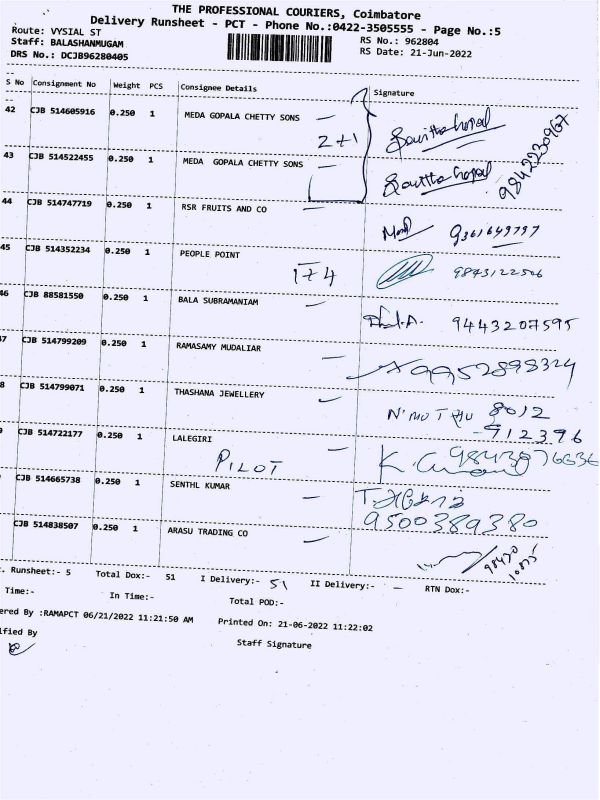 THE PROFESSIONAL COURIERS, Coimbatore
Delivery Runsheet - PCT - Phone No.:0422-3505555 - Page No.:5
Route: VYSIAL ST
Staff: BALASHANMUGAM
DRS No.: DCJB96280405
RS No.: 962804
RS Date: 21-Jun-2022
S No Consignment No Weight PCS Consignee Details Signature
42 CJB 514605916 0.250 1 MEDA GOPALA CHETTY SONS
2+1
43 CJB 514522455 0.250 1 MEDA GOPALA CHETTY SONS
9842230967
44 CJB 514747719 0.250 1 RSR FRUITS AND CO
9361649797
45 CJB 514352234 0.250 1 PEOPLE POINT
1+4
46 CJB 88581550 0.250 1 BALA SUBRAMANIAM
9443207595
7 CJB 514799209 0.250 1 RAMASAMY MUDALIAR
9952898324
8 CJB 514799071 0.250 1 THASHANA JEWELLERY
8012
912396
CJB 514722177 0.250 1 LALEGIRI
PILOT
CJB 514665738 0.250 1 SENTHL KUMAR
9500389380
CJB 514838507 0.250 1 ARASU TRADING CO
. Runsheet:- 5 Total Dox:- 51 I Delivery:- 51 II Delivery:- - RTN Dox:-
Time:- In Time:- Total POD:-
ered By :RAMAPCT 06/21/2022 11:21:50 AM Printed On: 21-06-2022 11:22:02
ified By Staff Signature